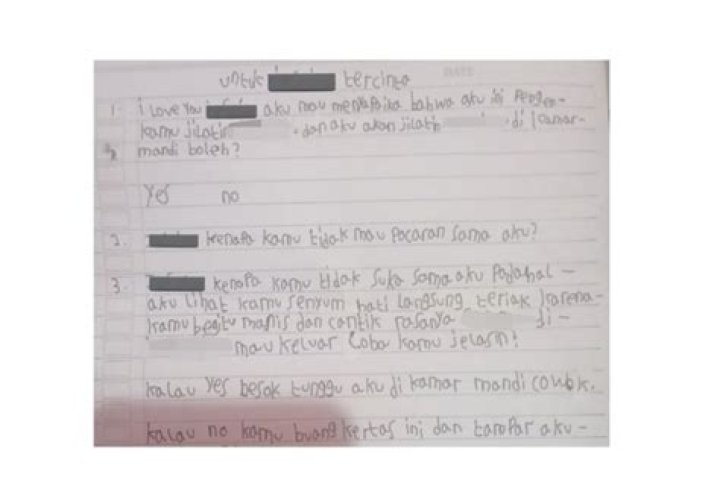 untuk tercinta
1. i Love You aku mau menyampaika bahwa aku ini Pengen-
kamu Jilatin . dan aku akan jilatin di kamar-
mandi boleh?
Yes no
2. kenapa kamu tidak mau Pacaran Sama aku?
3. kenapa kamu tidak Suka Sama aku Padahal -
aku Lihat kamu Senyum hati Langsung teriak karena-
kamu begitu manis dan cantik rasanya di -
mau keluar Coba kamu Jelasin!
kalau Yes besok tunggu aku di kamar mandi cowok.
kalau no kamu buang kertas ini dan tampar aku -